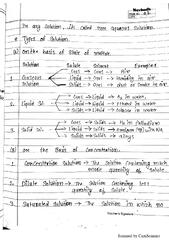 In any solution, it is called non aqueous solution.
* Types of solution.
(a) On the basis of State of matter.
Solute Solvent Examples
1. Gaseous Sol. Gas → Gas → Air
Liquid → Gas → Humidity in air
Solid → Gas →
2. Liquid Sol. Gas → Liquid → in water
Liquid → Liquid → Ethanol in water
Solid → Liquid → in water
3. Solid Sol. Gas → Solid → H₂ (Palladium)
Liquid → Solid →
Solid → Solid →
(b) On the Basis of Concentration.
1. Concentrated Solution → The Solution containing
more quantity of "Solute".
2. Dilute Solution → The Solution containing less
quantity of "Solute".
3. Saturated Solution → The Solution in which no
Teacher's Signature
Scanned by CamScanner